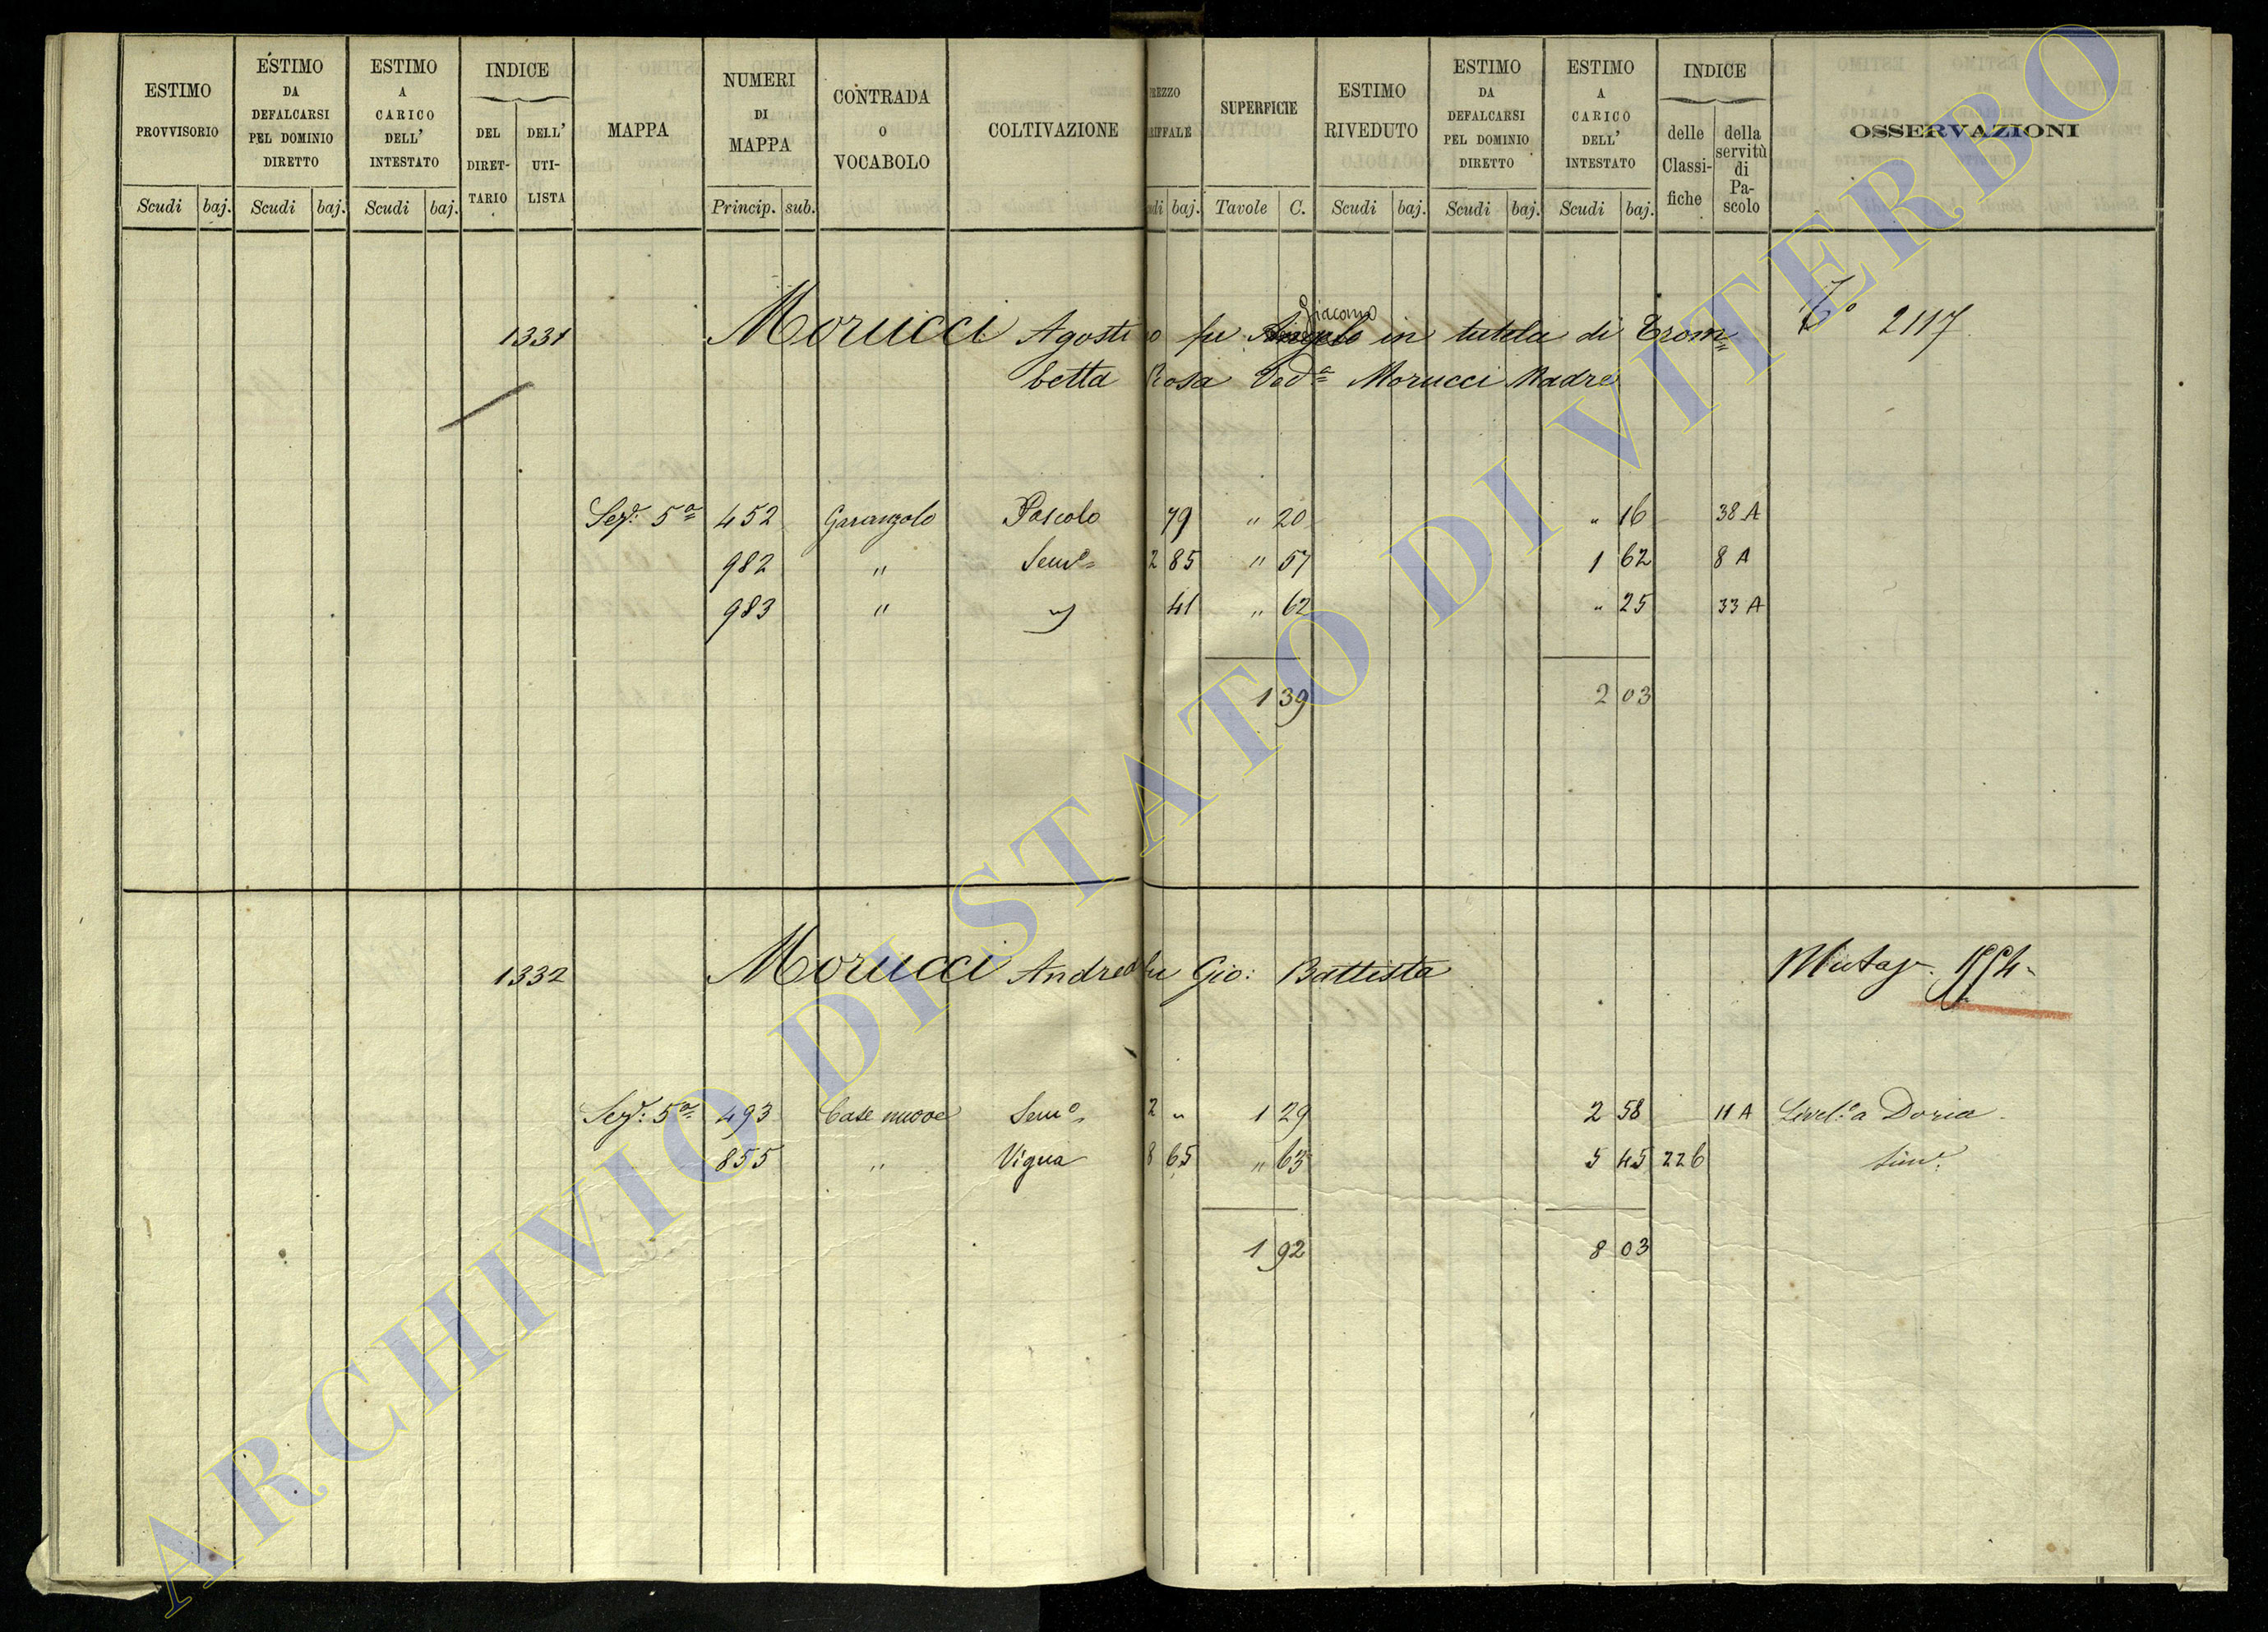 ESTIMO PROVVISORIO
ESTIMO DA DEFALCARSI PEL DOMINIO DIRETTO
ESTIMO A CARICO DELL' INTESTATO
INDICE
DEL DIRET-TARIO
DELL' UTI-LISTA
MAPPA
NUMERI DI MAPPA
CONTRADA O VOCABOLO
COLTIVAZIONE
REZZO RIFFALE
SUPERFICIE
ESTIMO RIVEDUTO
ESTIMO DA DEFALCARSI PEL DOMINIO DIRETTO
ESTIMO A CARICO DELL' INTESTATO
INDICE
delle Classi-fiche
della servitù di Pa-scolo
OSSERVAZIONI
Scudi baj. Scudi baj. Scudi baj. Princip. sub. di baj. Tavole C. Scudi baj. Scudi baj. Scudi baj.
Giacomo
1331 Morucci Agosti o fu Angelo in tutela di Trom= 2117
betta Rosa Ved.a Morucci Madre
Sez.e 5a 452 Garangolo Pascolo 79 " 20 " 16 38 A
982 " Sem.o 2 85 " 57 1 62 8 A
983 " " 41 " 62 " 25 33 A
1 39 2 03
1332 Morucci Andrea fu Gio: Battista
Sez.e 5a 493 Case nuove Sem.o 2 " 1 29 2 58 11 A Livel.o a Doria
855 " Vigna 8 65 " 63 5 45 226 Sim.e
1 92 8 03
ARCHIVIO DI STATO DI VITERBO